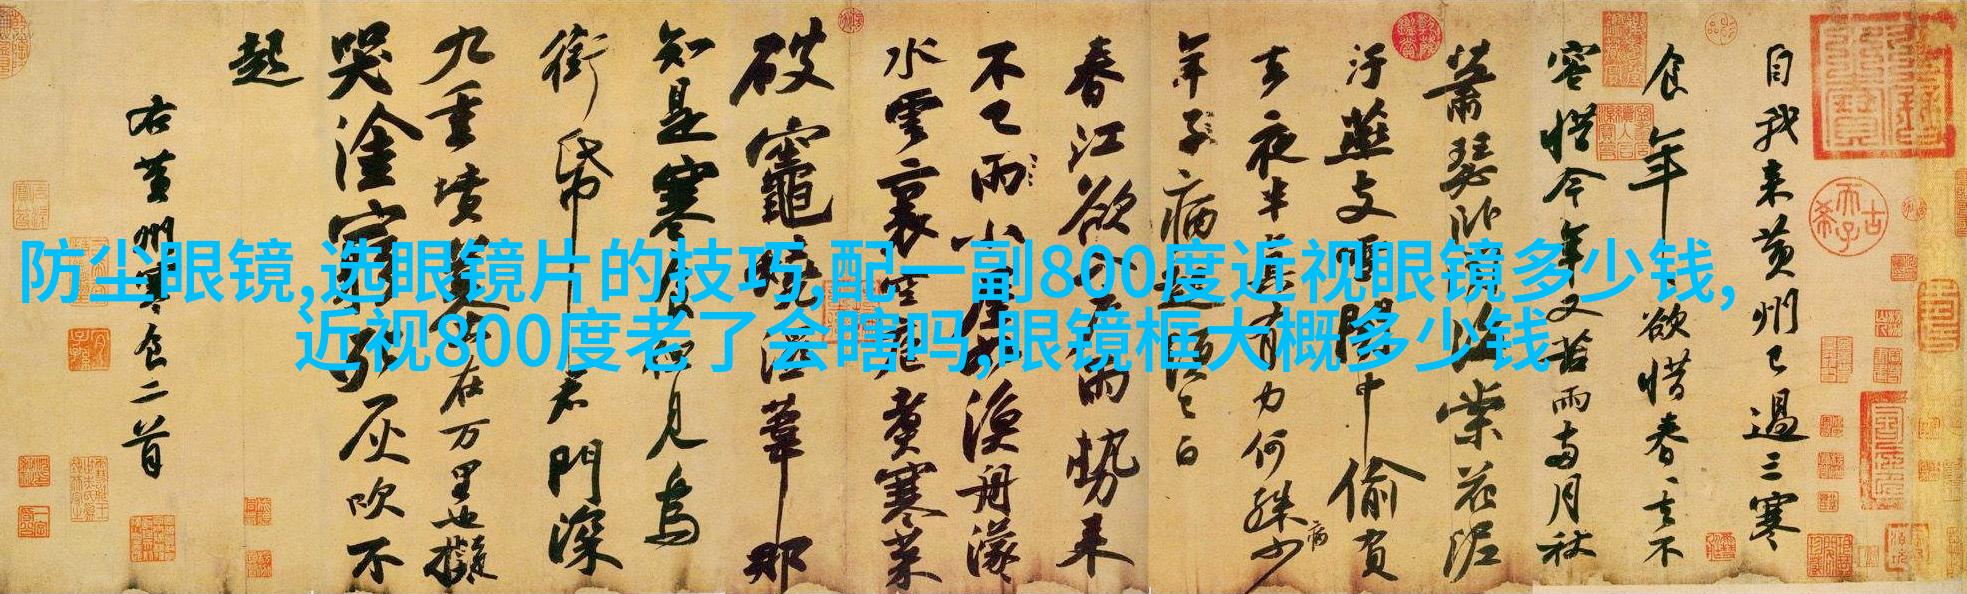 防尘眼镜,选眼镜片的技巧,配一副800度近视眼镜多少钱,
近视800度老了会瞎吗,眼镜框大概多少钱
自我来黄州已過三寒
食年〻欲惜春〻去不
容惜今年又苦雨兩月秋
蕭瑟卧聞海棠花泥
汙燕支雪闇中偷負
去夜半真有力何殊少
病
年子病起頭已白
春江欲入户雨勢来
不已雨小屋如漁舟濛〻
水雲裏空庖煮寒菜
破竈燒濕葦那
知是寒食但見烏
銜帋君門深
九重墳墓在万里也擬
哭塗窮死灰吹不
起
右黄州寒食二首